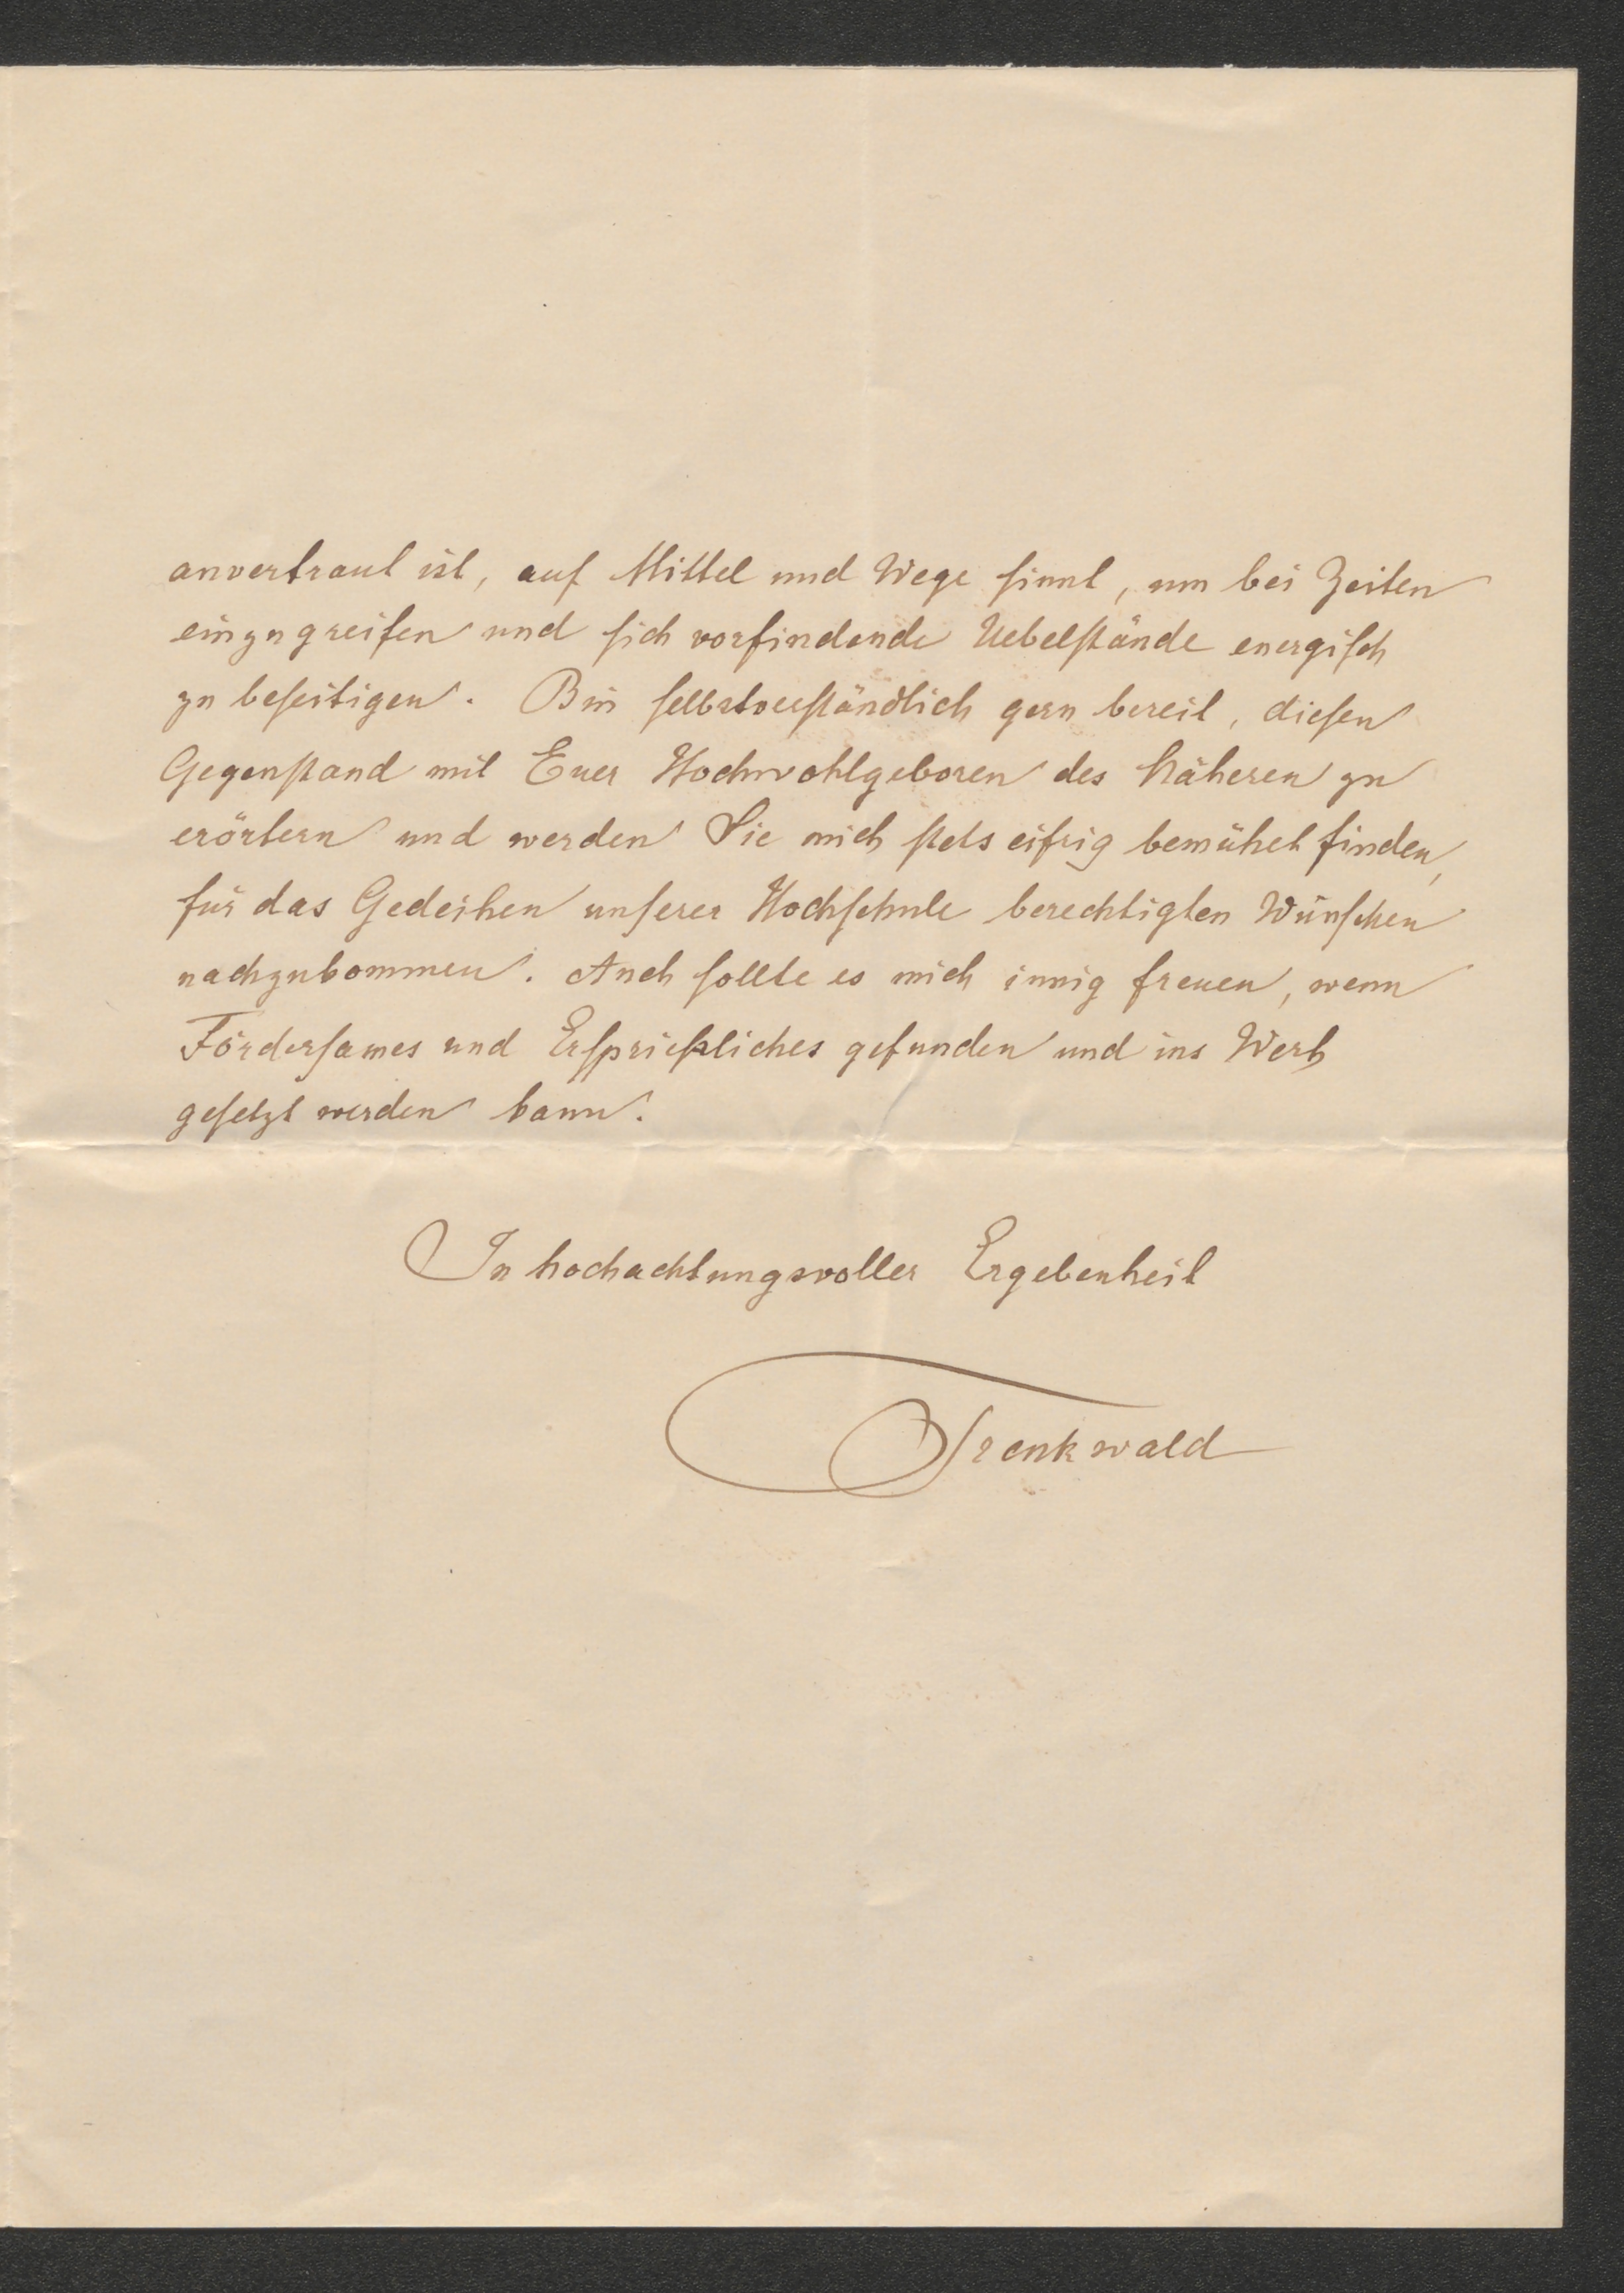 anvertraut ist, auf Mittel und Wege sinnt, um bei Zeiten
einzugreifen und sich vorfindende Uebelstände energisch
zu beseitigen. Bin selbstverständlich gern bereit, diesen
Gegenstand mit Euer Hochwohlgeboren des Näheren zu
erörtern und werden Sie mich stets eifrig bemühet finden,
für das Gedeihen unserer Hochschule berechtigten Wünschen
nachzukommen. Auch sollte es mich innig freuen, wenn
Fördersames und Ersprießliches gefunden und ins Werk
gesetzt werden kann.
In hochachtungsvoller Ergebenheit
Trenkwald